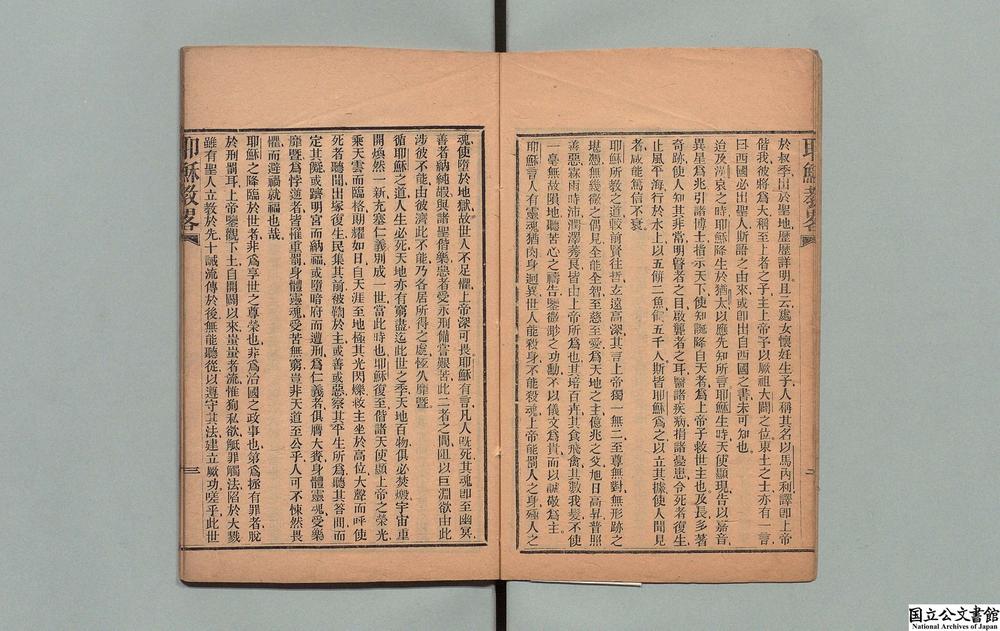 耶穌教畧
於叔季出於聖地歷歷詳明且云處女懷妊生子人稱其名以馬內利譯卽上帝
偕我彼將爲大稱至上者之子主上帝予以厥祖大闢之位東土之士亦有一言
曰西國必出聖人斯語之由來或卽出自西國之書未可知也
迨及漢哀之時耶穌降生於猶太以應先知所言耶穌生時天使顯現告以嘉音
異星爲兆引諸博士指示天下使知誕降自天者爲上帝子救世主也及長多著
奇跡使人知其非常明瞽者之目啟聾者之耳醫諸疾病捐諸憂患令死者復生
止風平海行於水上以五餠二魚餉五千人斯皆耶穌爲之以立其據使人聞見
者咸能篤信不衰
耶穌所敎之道較前賢往哲玄遠高深其言上帝獨一無二至尊無對無形跡之
堪憑無幾微之偶見全能全智至慈至愛爲天地之主億兆之父旭日高昇普照
善惡霖雨時沛潤澤莠良皆由上帝所爲也其培百卉其食飛禽其數我髮不使
一毫無故隕地聽苦心之禱告鑒微渺之功勳不以儀文爲貴而以誠敬爲主
耶穌言人有靈魂猶肉身迥異世人能殺身不能殺魂上帝能罰人之身殛人之
魂使墮於地獄故世人不足懼上帝深可畏耶穌有言凡人旣死其魂卽至幽冥
善者納純嘏與諸聖偕樂惡者受永刑備嘗艱苦此二者之間阻以巨淵欲由此
涉彼不能由彼濟此不能乃各居所得之處恆久靡曁
循耶穌之道人生必死天地亦有窮盡迄此世之季天地百物俱必焚燬宇宙重
開煥然一新充塞仁義別成一世當此時也耶穌復至偕諸天使顯上帝之榮光
乘天雲而臨格期耀如日自天涯至地極其光閃爍救主坐於高位大聲而呼使
死者聽聞出塚復生民集其前被鞫於主或善或惡察其平生所爲聽其答問而
定其餽或躋明宮而納福或墮暗府而遭刑爲仁義者俱膺大賚身體靈魂受樂
靡曁爲悖逆者皆懼重罰身體靈魂受苦無窮豈非天道至公乎人可不悚然畏
懼而避禍就福也哉
耶穌之降臨於世者非爲享世之尊榮也非爲治國之政事也第爲拯有罪者脫
於刑罰耳上帝鑒觀下土自開闢以來蚩蚩者流惟狥私欲觝罪觸法陷於大戮
雖有聖人立敎於先十誡流傳於後無能聽從以遵守其法建立厥功嗟乎此世
耶穌教畧
三
国立公文書館
National Archives of Japan